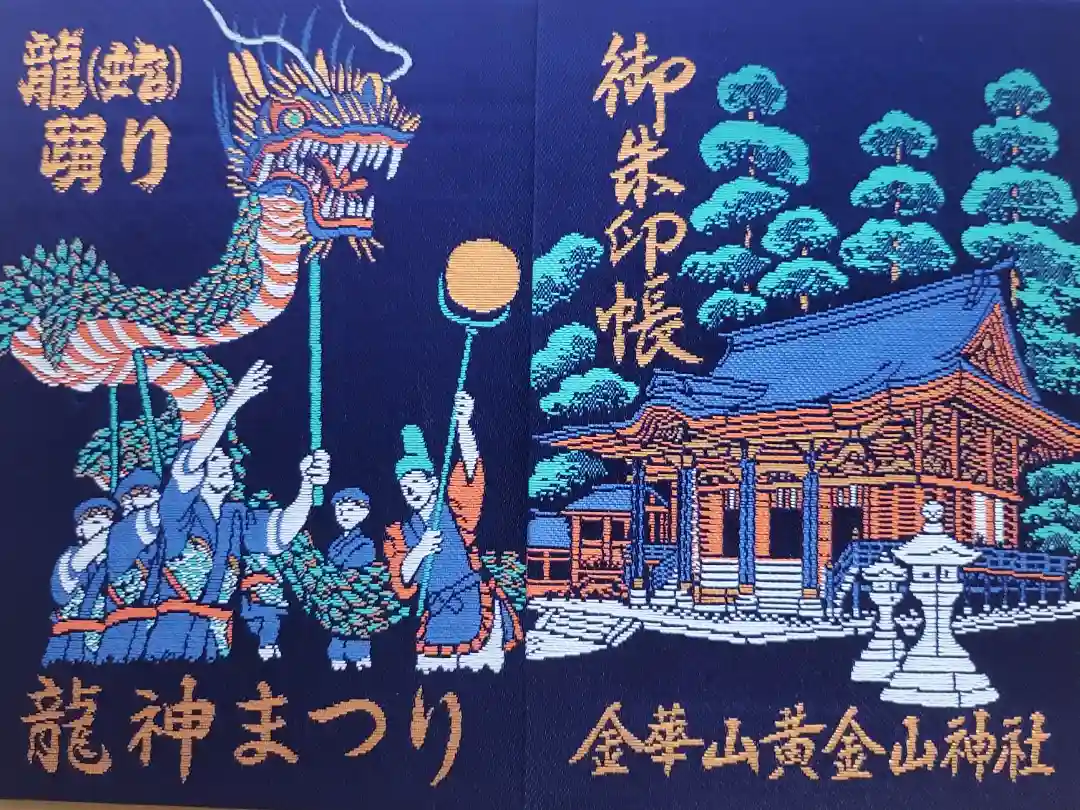 龍(蛇)
踊り
龍神まつり
御朱印帳
金華山黄金山神社